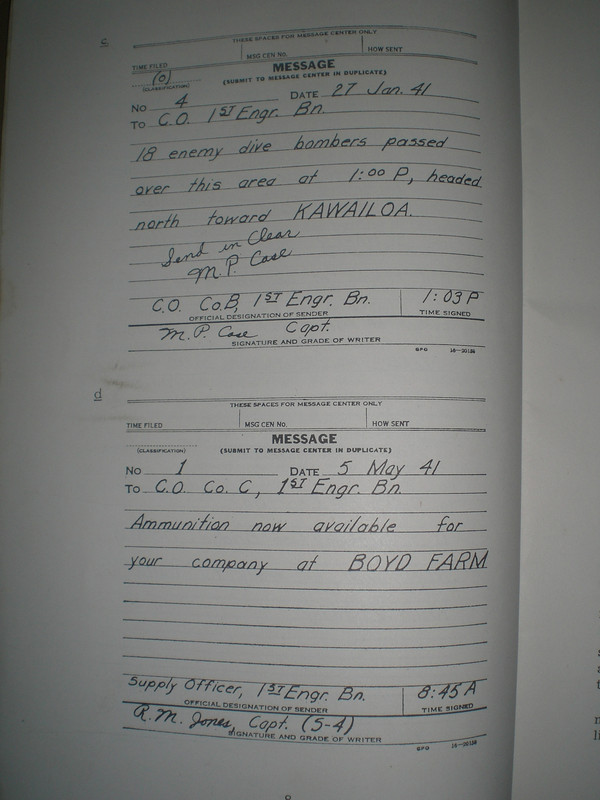 c
THESE SPACES FOR MESSAGE CENTER ONLY
TIME FILED MSG CEN No. HOW SENT
MESSAGE
(O)
(CLASSIFICATION) (SUBMIT TO MESSAGE CENTER IN DUPLICATE)
No 4 DATE 27 Jan. 41
To C.O. 1ST Engr. Bn.
18 enemy dive bombers passed
over this area at 1:00 P, headed
north toward KAWAILOA.
Send in Clear
M.P. Case
C.O. Co.B, 1ST Engr. Bn. 1:03 P
OFFICIAL DESIGNATION OF SENDER TIME SIGNED
M.P. Case Capt.
SIGNATURE AND GRADE OF WRITER
GPO 16—20156
d
THESE SPACES FOR MESSAGE CENTER ONLY
TIME FILED MSG CEN No. HOW SENT
MESSAGE
(CLASSIFICATION) (SUBMIT TO MESSAGE CENTER IN DUPLICATE)
No 1 DATE 5 May 41
To C.O. Co. C, 1ST Engr. Bn.
Ammunition now available for
your company at BOYD FARM
Supply Officer, 1ST Engr. Bn. 8:45 A
OFFICIAL DESIGNATION OF SENDER TIME SIGNED
R.M. Jones, Capt. (S-4)
SIGNATURE AND GRADE OF WRITER
GPO 16—20156